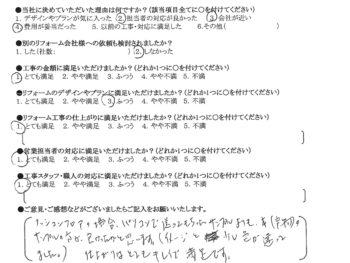 ●当社に決めていただいた理由は何ですか？(該当項目全てに○を付けてください)
1. デザインやプランが気に入った 2. 担当者の対応が良かった 3. 会社が近い
4. 費用が妥当だった 5. 以前の工事・対応に満足した 6. その他( )
●別のリフォーム会社様への依頼も検討されましたか？
1. した(社数: ) 2. しなかった
●工事の金額に満足いただけましたか？(どれか1つに○を付けてください)
1. とても満足 2. やや満足 3. ふつう 4. やや不満 5. 不満
●リフォームのデザインやプランに満足いただけましたか？(どれか1つに○を付けてください)
1. とても満足 2. やや満足 3. ふつう 4. やや不満 5. 不満
●リフォーム工事の仕上がりに満足いただけましたか？(どれか1つに○を付けてください)
1. とても満足 2. やや満足 3. ふつう 4. やや不満 5. 不満
●営業担当者の対応に満足いただけましたか？(どれか1つに○を付けてください)
1. とても満足 2. やや満足 3. ふつう 4. やや不満 5. 不満
●工事スタッフ・職人の対応に満足いただけましたか？(どれか1つに○を付けてください)
1. とても満足 2. やや満足 3. ふつう 4. やや不満 5. 不満
●ご意見・ご感想などがございましたらご記入をお願いいたします。
クッションフロアの場合、パソコンで
思います。(イメージと 少し色が違って
ました。) 仕上がりはとてもキレイで満足です。